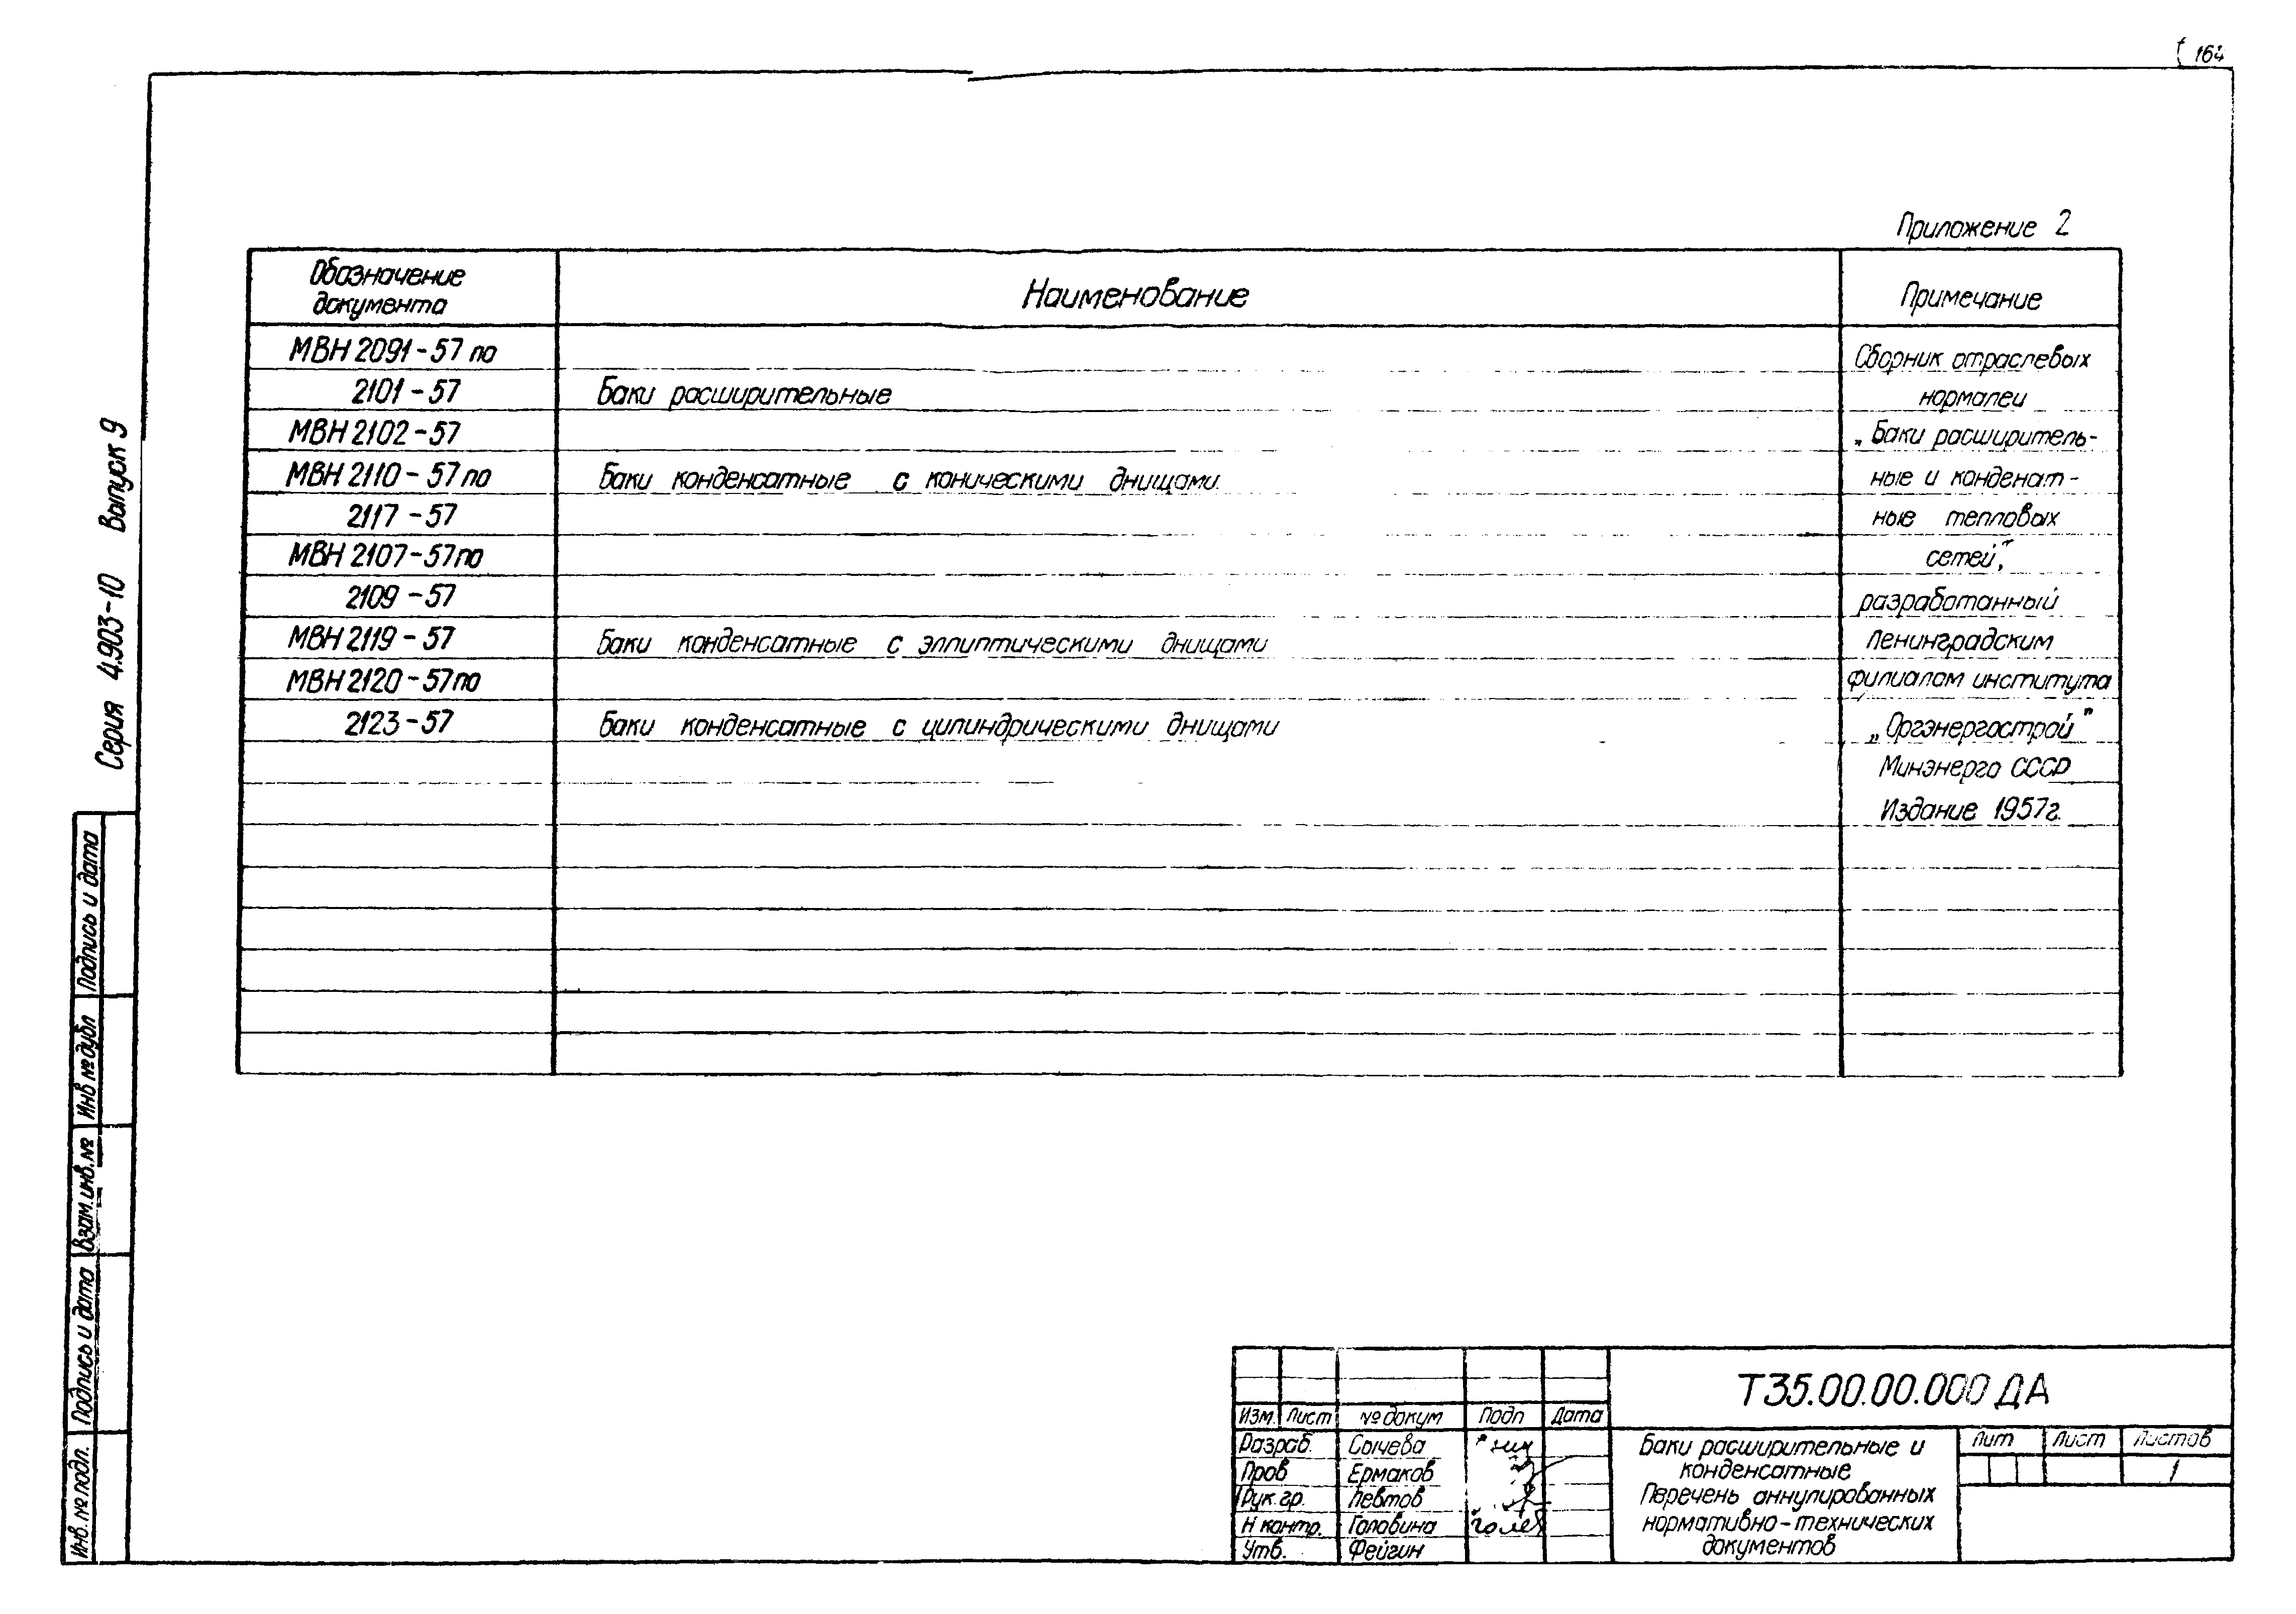 164
Приложение 2
Обозначение документа
Наименование
Примечание
МВН 2091-57 по
2101-57
Баки расширительные
МВН 2102-57
МВН 2110-57 по
Баки конденсатные с коническими днищами.
2117-57
МВН 2107-57 по
2109-57
МВН 2119-57
Баки конденсатные с эллиптическими днищами
МВН 2120-57 по
2123-57
Баки конденсатные с цилиндрическими днищами
Сборник отраслевых
нормалеи
„Баки расширитель-
ные и конденат-
ные тепловых
сетей",
разработанный
Ленинградским
филиалом института
„Оргэнергострой"
Минэнерго СССР
Издание 1957г.
Серия 4.903-10 Выпуск 9
Подпись и дата
Инв № дубл
Взам.инв.№
Подпись и дата
Инв.№ подл.
Т35.00.00.000 ДА
Изм. Лист № докум Подп Дата
Разраб. Сычева
Пров Ермаков
Рук.гр. Левтов
Н контр. Головина
Утв. Фейгин
Баки расширительные и
конденсатные
Перечень аннулированных
нормативно-технических
документов
Лит Лист Листов
1